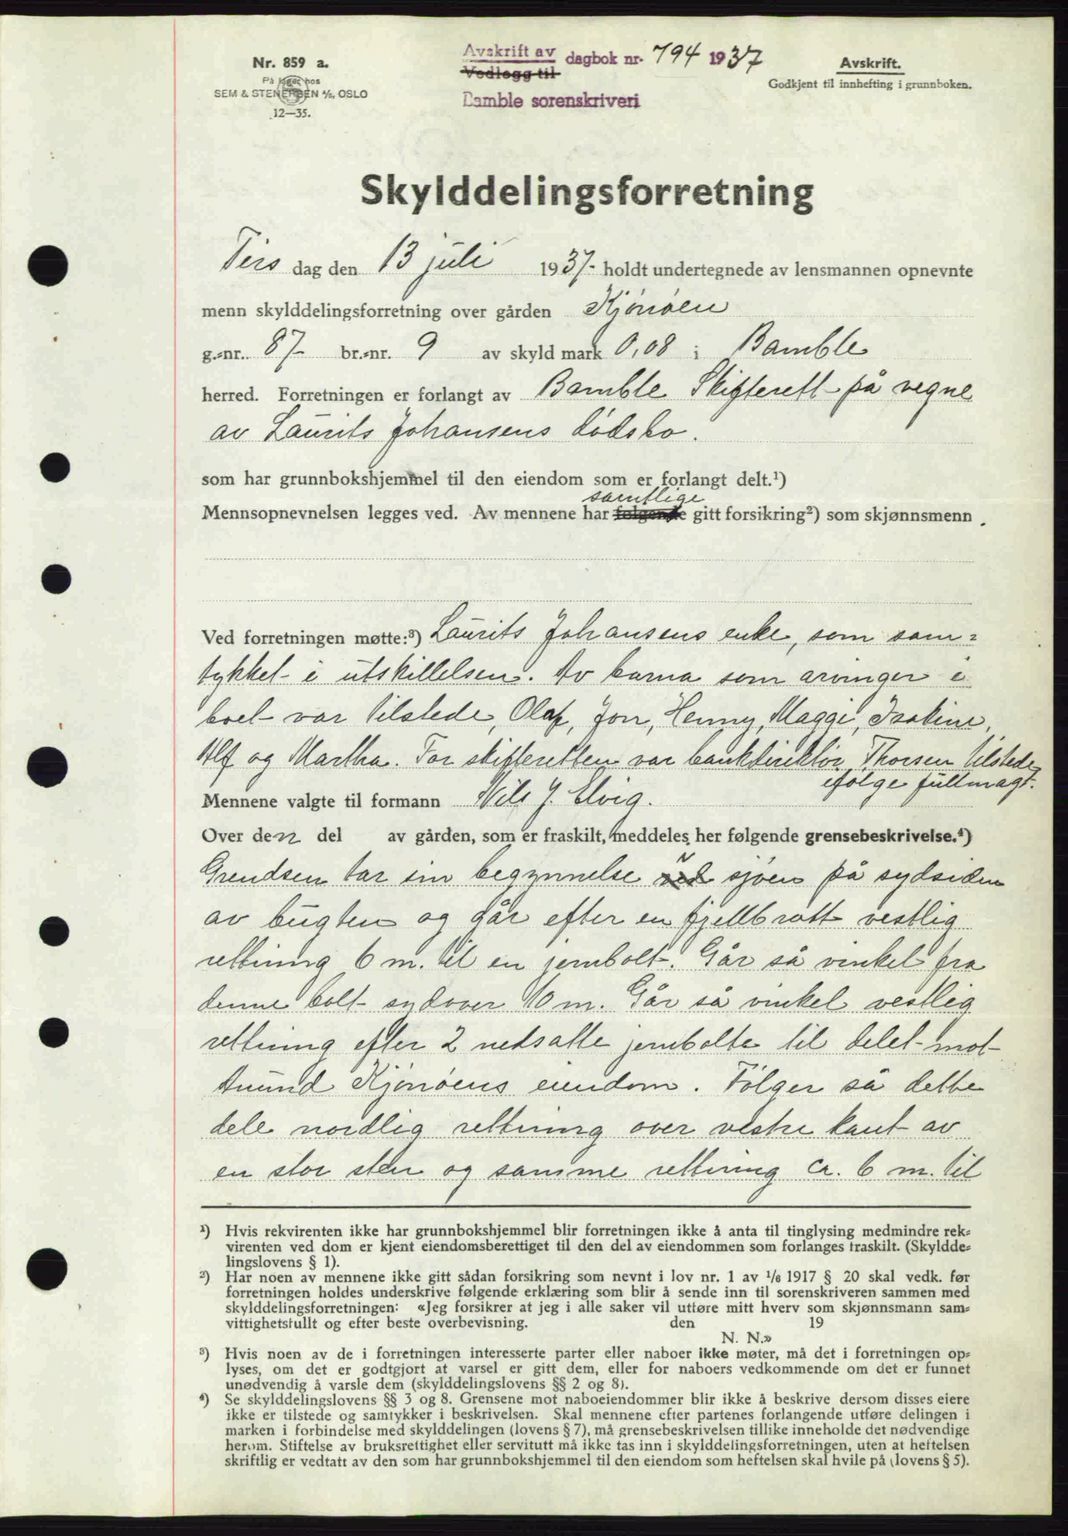 Nr. 859 a.
På lager hos
SEM & STENERSEN A/S, OSLO
12—35.
Avskrift av dagbok nr. 794 1937
Vedlegg til
Bamble sorenskriveri
Avskrift.
Godkjent til innhefting i grunnboken.
Skylddelingsforretning
Tirs dag den 13 juli 1937- holdt undertegnede av lensmannen opnevnte
menn skylddelingsforretning over gården Kjönöen
g.-nr. 87- br.-nr. 9 av skyld mark 0,08 i Bamble
herred. Forretningen er forlangt av Bamble Skifterett på vegne
av Laurits Johansens dödsbo.
som har grunnbokshjemmel til den eiendom som er forlangt delt.¹)
samtlige
Mennsopnevnelsen legges ved. Av mennene har følgende gitt forsikring²) som skjønnsmenn.
Ved forretningen møtte:³) Laurits Johansens enke, som sam-
tykket i utskillelsen. Av barna som arvinger i
boet var tilstede, Olaf, Jon, Henny, Maggi, Isakine,
Alf og Martha. For skifteretten var bankdirektör Thorsen tilstede
ifölge fullmagt.
Mennene valgte til formann Nils J. Elvig.
Over den del av gården, som er fraskilt, meddeles her følgende grensebeskrivelse.⁴)
Grendsen tar sin begynnelse ved sjöen på sydsiden
av bugten og går efter en fjellbratt vestlig
rettning 6 m. til en jernbolt. Går så vinkel fra
denne bolt sydover 10 m. Går så vinkel vestlig
rettning efter 2 nedsatte jernbolte til delet mot
Anund Kjönöens eiendom. Fölger så dette
dele nordlig rettning over vestre kant av
en stor sten og samme rettning ca. 6 m. til
¹) Hvis rekvirenten ikke har grunnbokshjemmel blir forretningen ikke å anta til tinglysing medmindre rek-
virenten ved dom er kjent eiendomsberettiget til den del av eiendommen som forlanges fraskilt. (Skyldde-
lingslovens § 1).
²) Har noen av mennene ikke gitt sådan forsikring som nevnt i lov nr. 1 av 1/6 1917 § 20 skal vedk. før
forretningen holdes underskrive følgende erklæring som blir å sende inn til sorenskriveren sammen med
skylddelingsforretningen: «Jeg forsikrer at jeg i alle saker vil utføre mitt hverv som skjønnsmann sam-
vittighetsfullt og efter beste overbevisning. den 19
N. N.»
³) Hvis noen av de i forretningen interesserte parter eller naboer ikke møter, må det i forretningen op-
lyses, om det er godtgjort at varsel er gitt dem, eller for naboers vedkommende om det er funnet
unødvendig å varsle dem (skylddelingslovens §§ 2 og 8).
⁴) Se skylddelingslovens §§ 3 og 8. Grensene mot naboeiendommer blir ikke å beskrive dersom disses eiere
ikke er tilstede og samtykker i beskrivelsen. Skal mennene efter partenes forlangende utføre delingen i
marken i forbindelse med skylddelingen (lovens § 7), må grensebeskrivelsen tillike inneholde det nødvendige
herom. Stiftelse av bruksrettighet eller servitutt må ikke tas inn i skylddelingsforretningen, uten at heftelsen
skriftlig er vedtatt av den som har grunnbokshjemmel til den eiendom som heftelsen skal hvile på (lovens § 5).